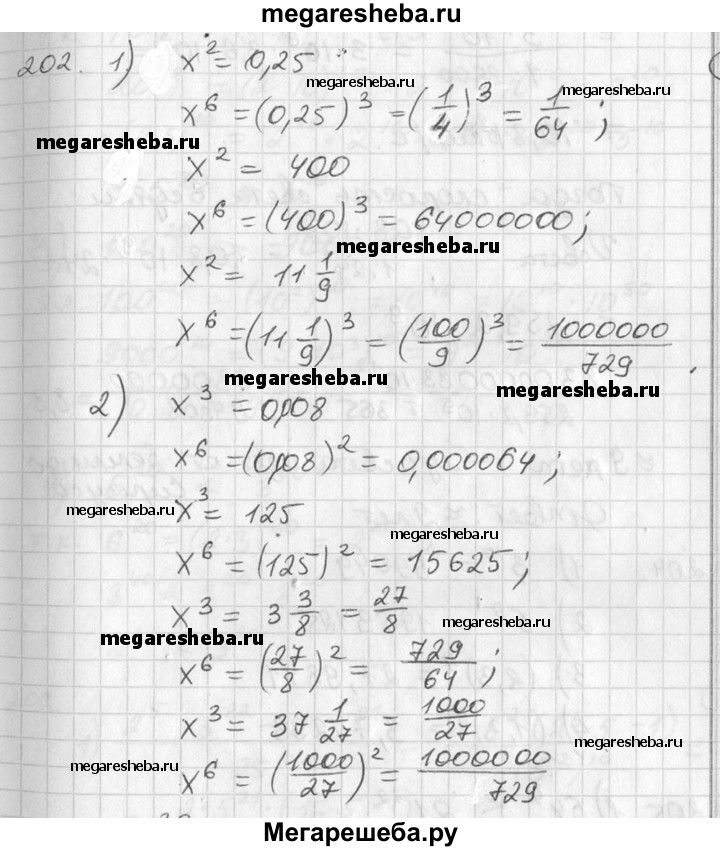 megaresheba.ru
202. 1) x² = 0,25
megaresheba.ru
x⁶ = (0,25)³ = (1/4)³ = 1/64 ;
megaresheba.ru
megaresheba.ru
x² = 400
x⁶ = (400)³ = 64000000;
megaresheba.ru
x² = 11 1/9
x⁶ = (11 1/9)³ = (100/9)³ = 1000000/729 .
megaresheba.ru
megaresheba.ru
2) x³ = 0,008
x⁶ = (0,008)² = 0,000064 ;
megaresheba.ru
x³ = 125
megaresheba.ru
x⁶ = (125)² = 15625;
x³ = 3 3/8 = 27/8
megaresheba.ru
megaresheba.ru
x⁶ = (27/8)² = 729/64 ;
x³ = 37 1/27 = 1000/27
megaresheba.ru
megaresheba.ru
x⁶ = (1000/27)² = 1000000/729
Мегарешеба.ру